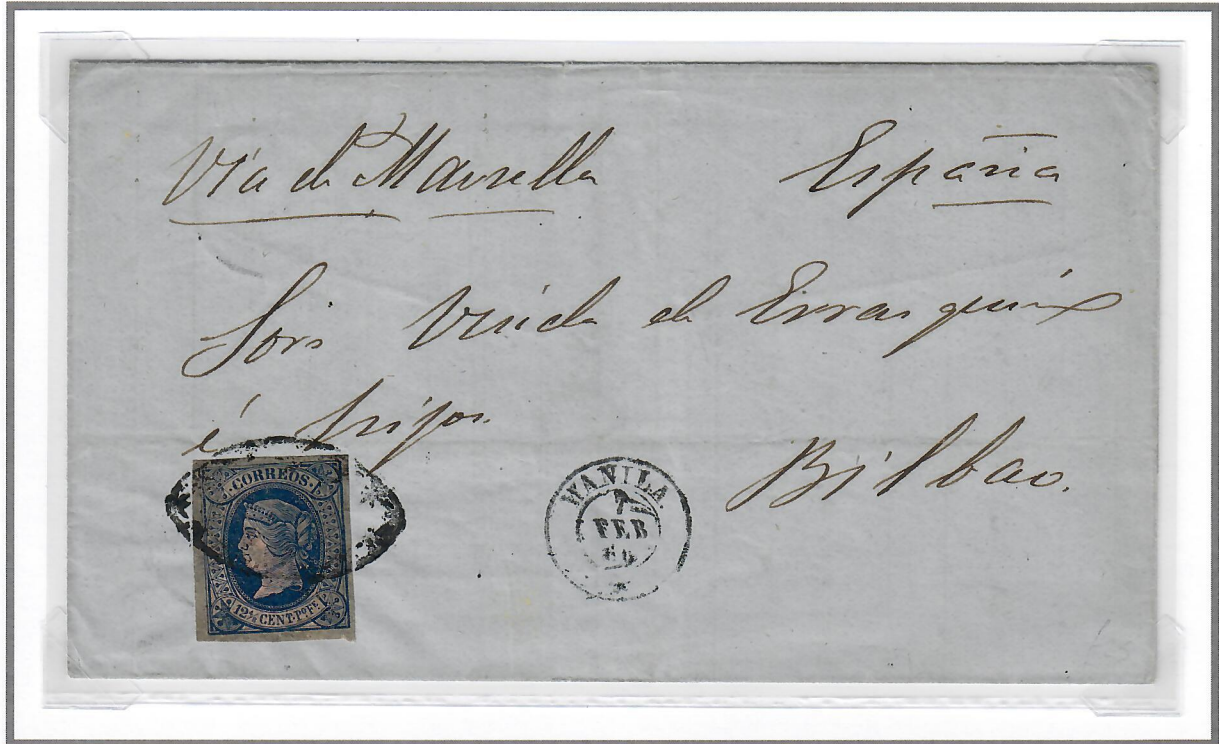 Via de Marsella España
Sors Viuda de Errasquin
é hijos
Bilbao.
CORREOS
12 4/8 CENT. Po Fe
MANILA
FEB